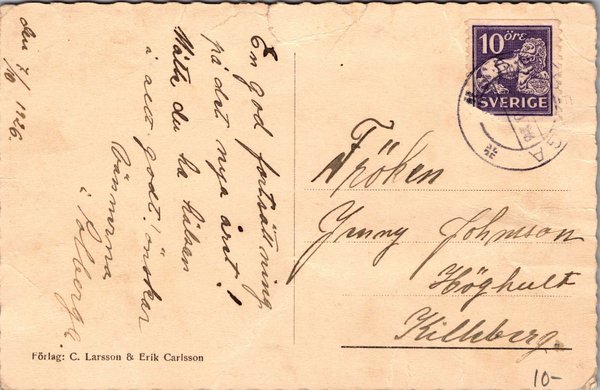 den 7/10 1926.
En god fortsättning
på det nya året!
Måtte du ha hälsan
i allt godt! önskar
vännerna
i Solberga.
10 ÖRE
SVERIGE
GA
Fröken
Jenny Johnsson
Höghult
Killeberg.
Förlag: C. Larsson & Erik Carlsson
10-